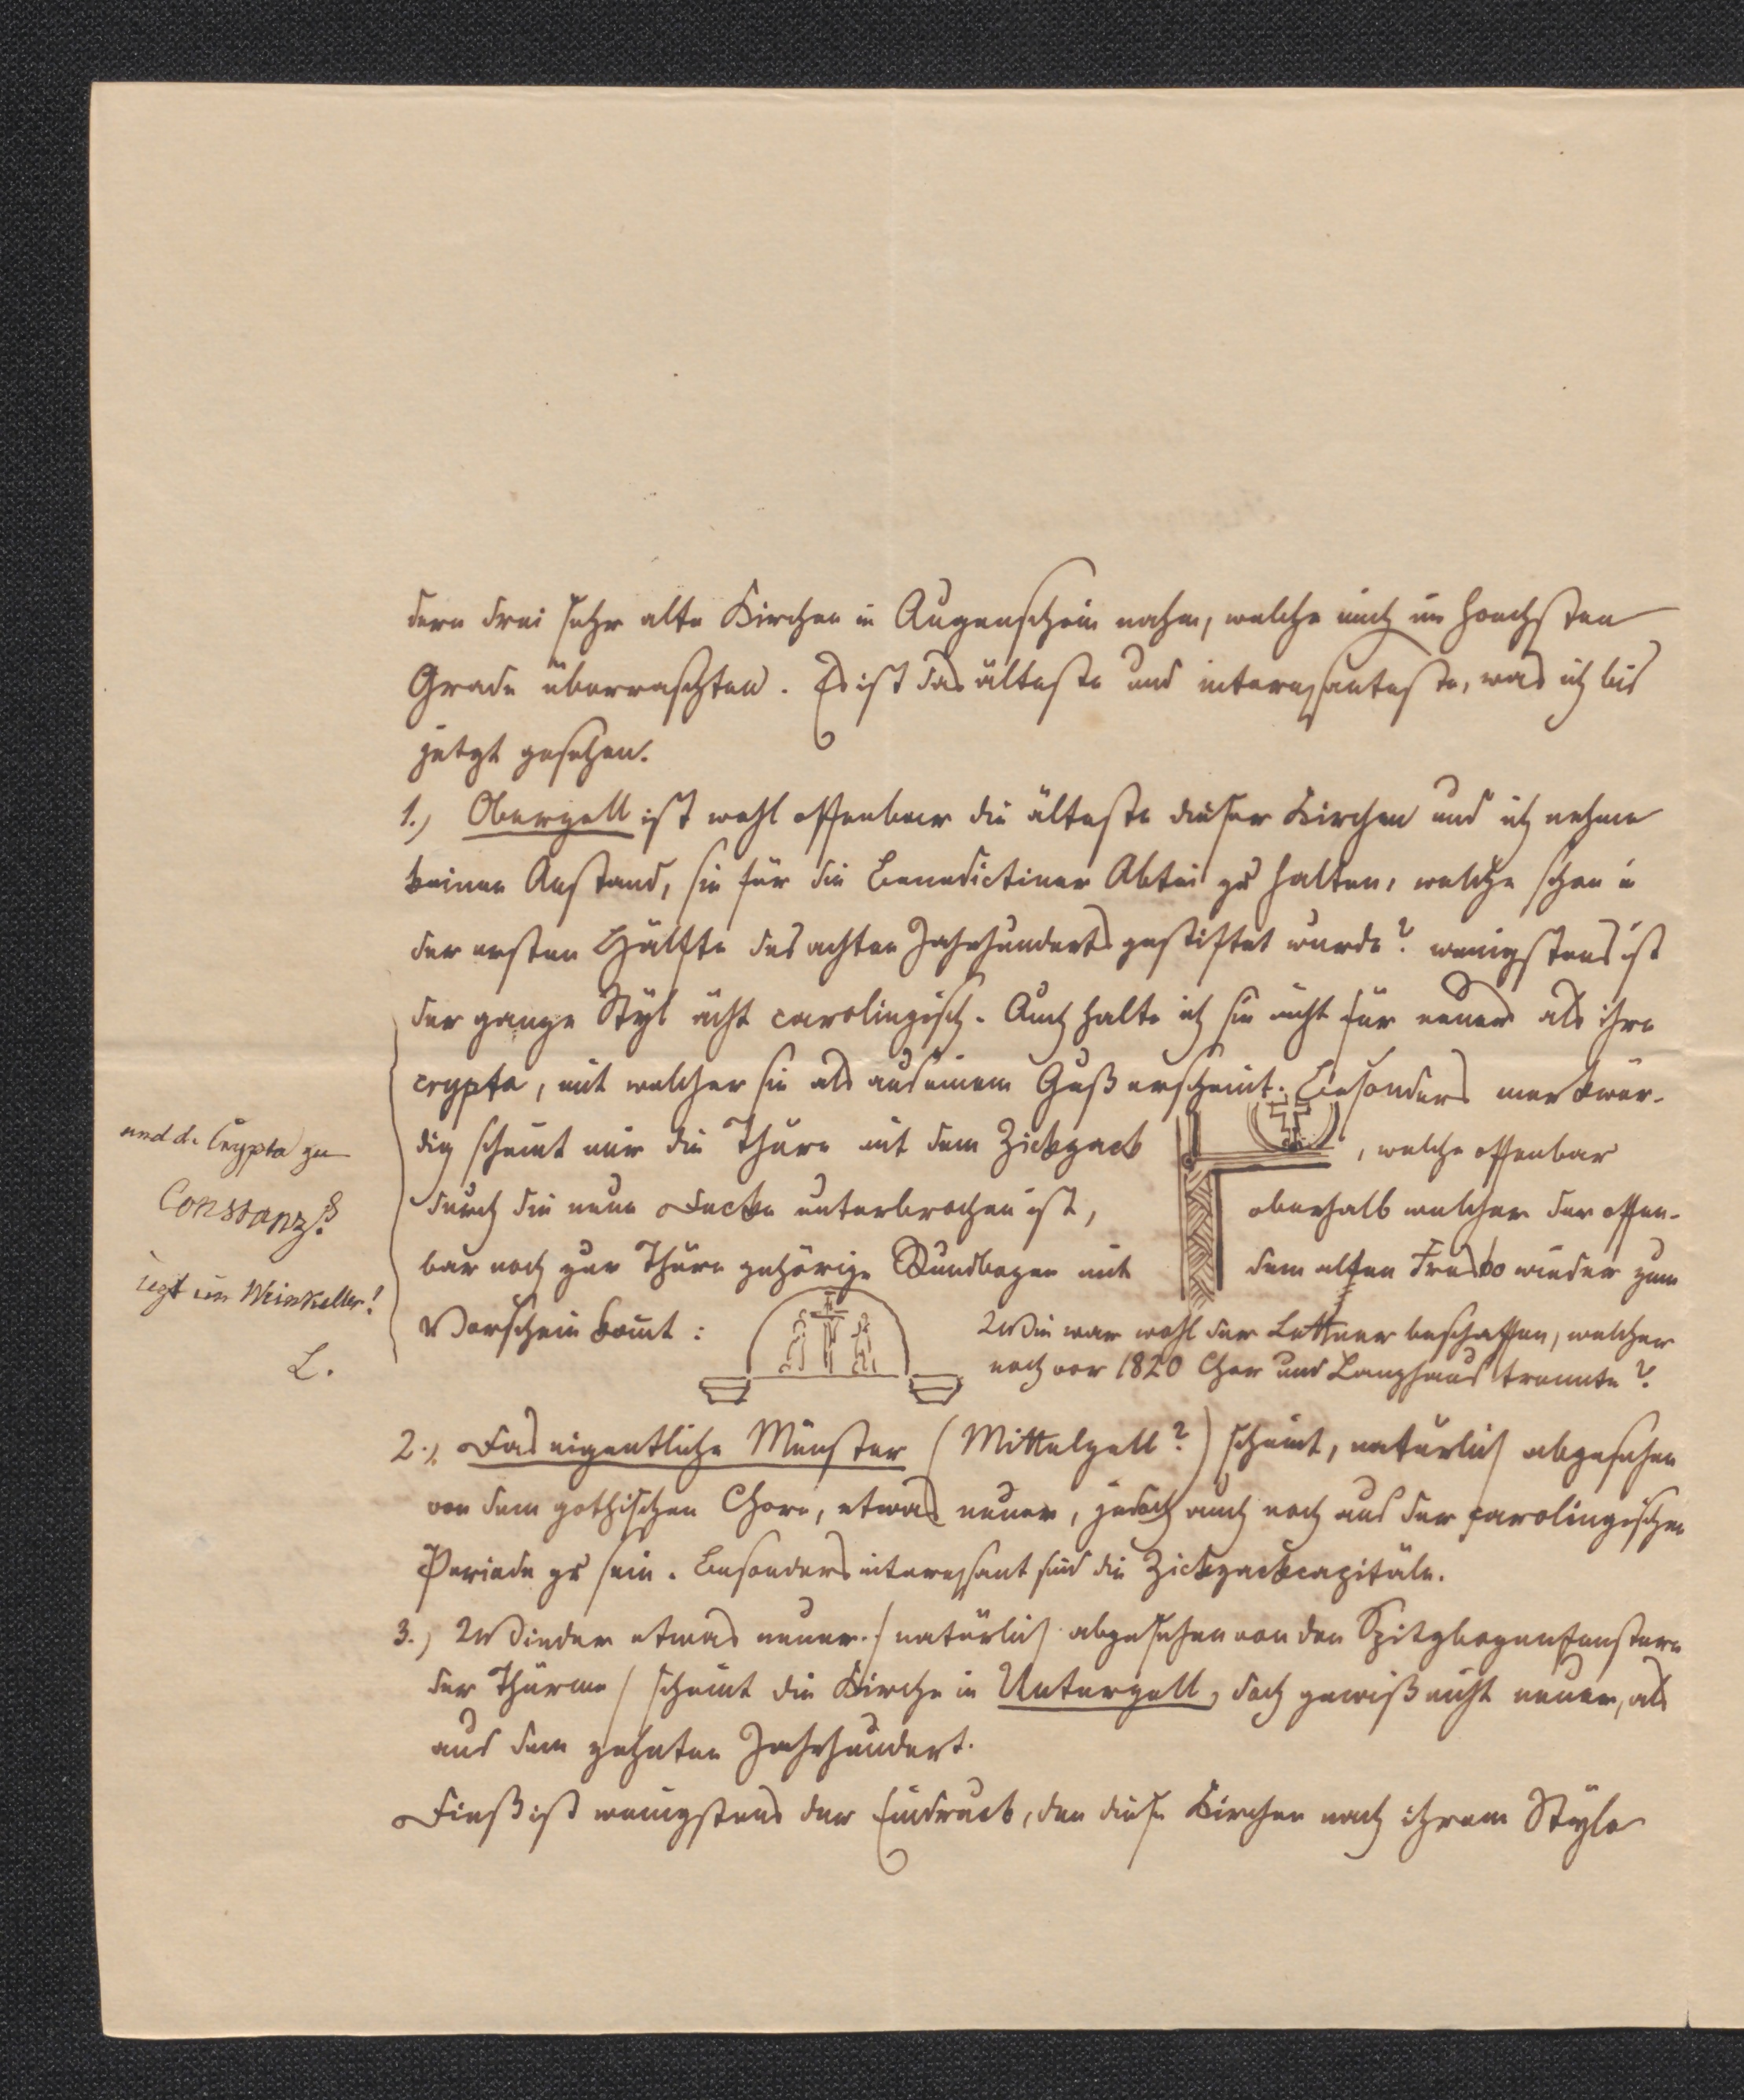 deren drei sehr alte Kirchen in Augenschein nahm, welche mich im hoechsten
Grade überraschten. Es ist das älteste und interessanteste, was ich bis
jetzt gesehen.
1.) Oberzell ist wohl offenbar die älteste dieser Kirchen und ich nehme
keinen Anstand, sie für die Benedictiner Abtei zu halten, welche schon in
der ersten Hälfte des achten Jahrhunderts gestiftet wurde? wenigstens ist
der ganze Styl ächt carolingisch. Auch halte ich sie nicht für neuer als ihre
crypta, mit welcher sie als aus einem Guß erscheint. Besonders merkwür-
dig scheint mir die Thüre mit dem Zickzack , welche offenbar
durch die neue Decke unterbrochen ist, oberhalb welcher der offen-
bar noch zur Thüre gehörige Rundbogen mit dem alten Fresko wieder zum
Vorschein kom̄t :
Wie war wohl der Lettner beschaffen, welcher
noch vor 1820 Chor und Langhaus trennte?
und d. Crypta zu
Constanz?
jezt im Weinkeller!
L.
2.) Das eigentliche Münster (Mittelzell?) scheint, natürlich abgesehen
von dem gothischen Chore, etwas neuer, jedoch auch noch aus der carolingischen
Periode zu sein. Besonders interessant sind die Zickzackcapitäle.
3.) Wieder etwas neuer / natürlich abgesehen von den Spitzbogenfenstern
der Thürme / scheint die Kirche in Unterzell, doch gewiß nicht neuer, als
aus dem zehnten Jahrhundert.
Dieß ist wenigstens der Eindruck, den diese Kirchen nach ihrem Style